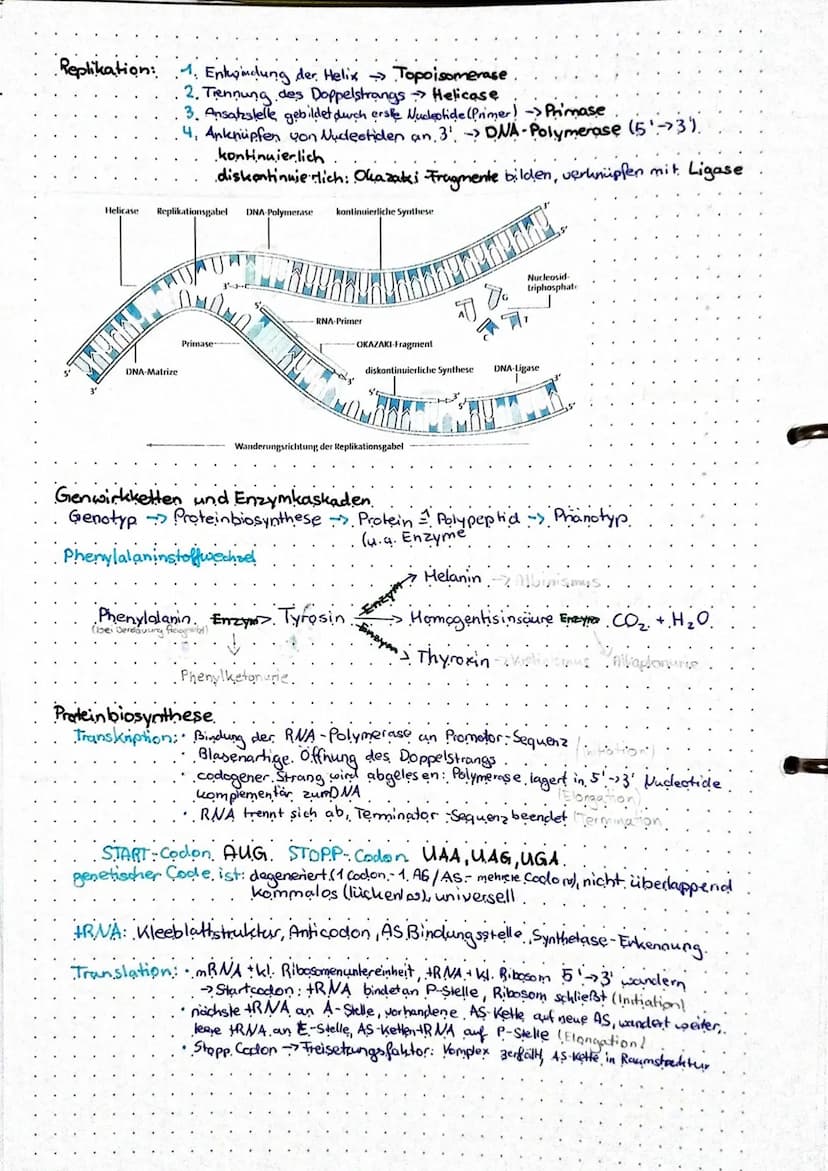 Replikation: 1. Entwindung der Helix → Topoisomerase
2. Trennung des Doppelstrangs → Helicase
3. Ansatzstelle gebildet durch erste Nucleotide (Primer) → Primase
4. Anknüpfen von Nucleotiden an 3' → DNA-Polymerase (5'→3')
kontinuierlich
diskontinuierlich: Okazaki-Fragmente bilden, verknüpfen mit Ligase
Helicase Replikationsgabel DNA-Polymerase kontinuierliche Synthese
3'
5'
Nucleosid-
triphosphate
3'
5'
A G C T
RNA-Primer
Primase
OKAZAKI-Fragment
DNA-Matrize
diskontinuierliche Synthese DNA-Ligase
3'
5'
3'
5'
3'
5'
3'
5'
Wanderungsrichtung der Replikationsgabel
Genwirkketten und Enzymkaskaden
Genotyp → Proteinbiosynthese → Protein ≙ Polypeptid → Phänotyp
(u.a. Enzyme
Phenylalaninstoffwechsel
Melanin → Albinismus
Phenylalanin Enzym> Tyrosin Enzym Homogentisinsäure Enzym CO2 + H2O
Enzym
(bei Verdauung
Enzym
Thyroxin →
Phenylketonurie
Proteinbiosynthese
Transkription: • Bindung der RNA-Polymerase an Promotor-Sequenz (Initiation)
• Blasenartige Öffnung des Doppelstrangs
• codogener Strang wird abgelesen: Polymerase lagert in 5'→3' Nucleotide
komplementär zum DNA (Elongation)
• RNA trennt sich ab, Terminator-Sequenz beendet (Termination
START-Codon AUG STOPP-Codon UAA, UAG, UGA
genetischer Code ist: degeneriert (1 Codon - 1 AS / AS - mehrere Codons), nicht überlappend
kommalos (lückenlos), universell
tRNA: Kleeblattstruktur, Anticodon, AS Bindungsstelle, Synthetase-Erkennung
Translation: • mRNA + kl. Ribosomenuntereinheit, tRNA + kl. Ribosom 5'→3' wandern
→ Startcodon: tRNA bindet an P-Stelle, Ribosom schließt (Initiation)
• nächste tRNA an A-Stelle, vorhandene AS-Kette auf neue AS, wandert weiter
leere tRNA an E-Stelle, AS-Ketten-tRNA auf P-Stelle (Elongation)
• Stopp Codon → Freisetzungsfaktor: Komplex zerfällt, AS-Kette in Raumstruktur